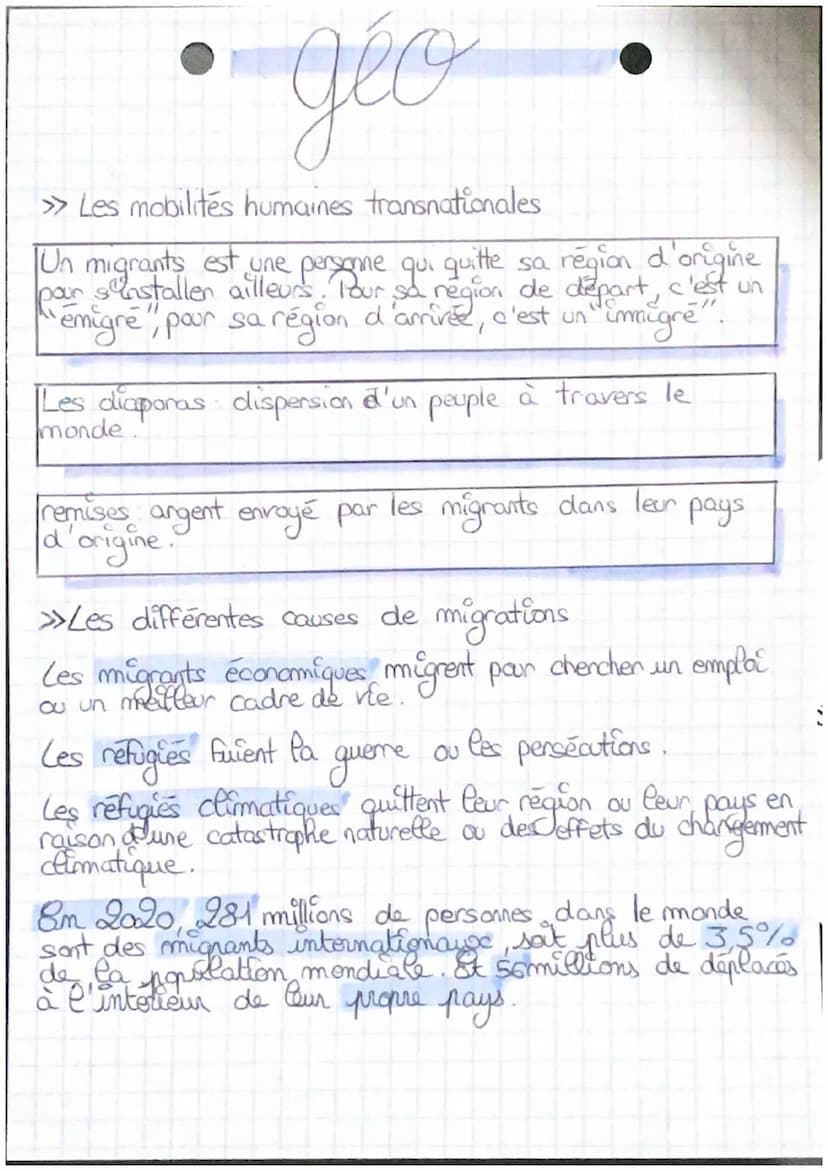 géo
>> Les mobilités humaines transnationales
Un migrants est une personne qui quitte sa région d'origine
pour s'installer ailleurs. Pour sa région de départ, c'est un
"émigré", pour sa région d'arrivée, c'est un "immigré".
Les diaporas : dispersion d'un peuple à travers le
monde.
remises : argent envoyé par les migrants dans leur pays
d'origine.
>> Les différentes causes de migrations
Les migrants économiques migrent pour chercher un emploi
ou un meilleur cadre de vie.
Les réfugiés fuient la guerre ou les persécutions.
Les réfugiés climatiques quittent leur région ou leur pays en
raison d'une catastrophe naturelle ou des effets du changement
climatique.
En 2020, 281 millions de personnes dans le monde
sont des migrants internationaux, soit plus de 3,5%
de la population mondiale. Et 56 millions de déplacés
à l'intérieur de leur propre pays.